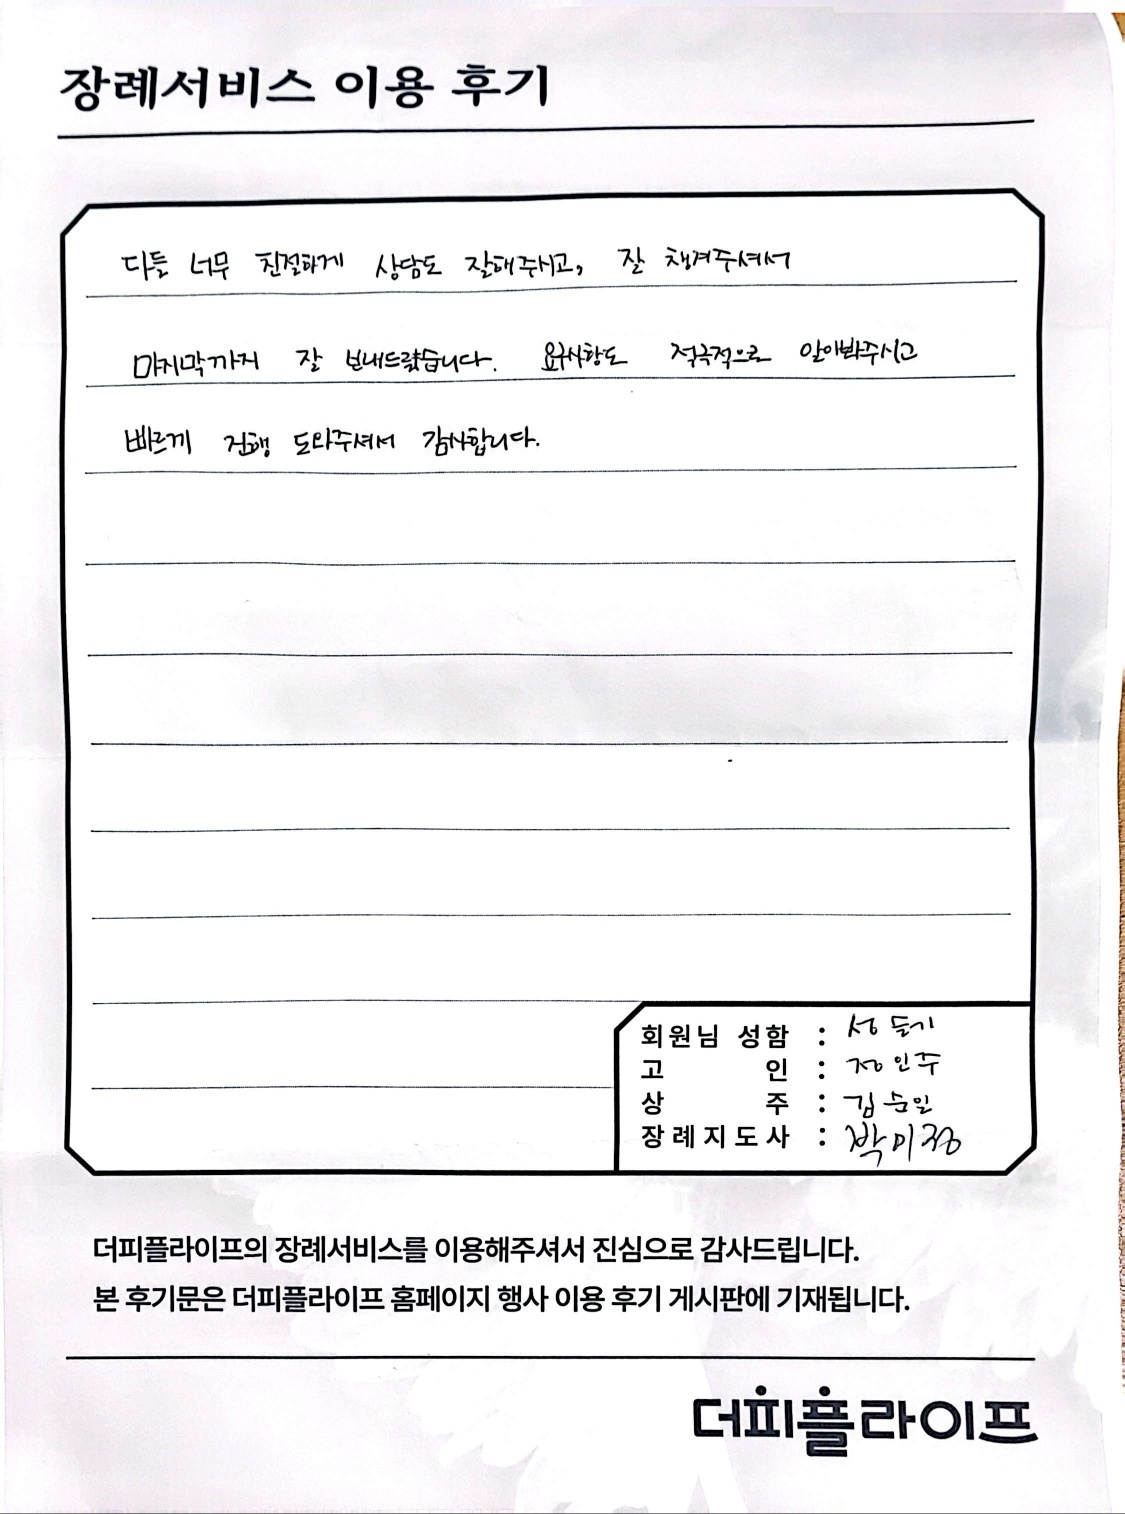 장례서비스 이용 후기
다들 너무 친절하게 상담도 잘해주시고, 잘 챙겨주셔서
마지막까지 잘 보내드렸습니다. 요구사항도 적극적으로 알아봐주시고
빠르게 진행 도와주셔서 감사합니다.
회원님 성함 : 성들기
고 인 : 정인주
상 주 : 김순일
장례지도사 : 박이정
더피플라이프의 장례서비스를 이용해주셔서 진심으로 감사드립니다.
본 후기문은 더피플라이프 홈페이지 행사 이용 후기 게시판에 기재됩니다.
더피플라이프